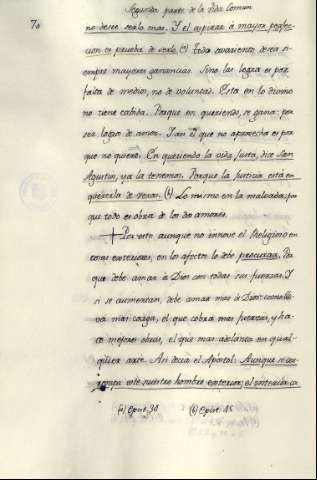 Segunda parte de la Vida Comun
70
no desee serlo mas. Y el aspirar à mayor perfec-
cion es prueba de serlo. (*) Todo avariento desea si-
empre mayores ganancias. Sino las logra es por
falta de medios, no de voluntad. Esta en lo divino
no tiene cabida. Porque en queriendo, se gana: por
ser logro de amor. Y asi el que no aprovecha es por
que no quiere. En queriendo la vida justa, dice San
Agustin, ya la tenemos. Porque la Justicia está en
quererla de veras. (*) Lo mismo en la malvada: por
que todo es obra de los dos amores.
Por esto, aunque no innove el Religioso en
cosas exteriores, en los afectos lo debe procurar. Por
que debe amar à Dios con todas sus fuerzas. Y
si se aumentan, debe amar mas à Dios: como lle-
va mas carga, el que cobra mas fuerzas, y ha-
ce mejores obras, el que mas adelanta en qual-
quiera arte. Asi decia el Apostol: Aunque se cor-
rompa este nuestro hombre exterior, el interior se
(*) Epist. 34 (*) Epist. 45